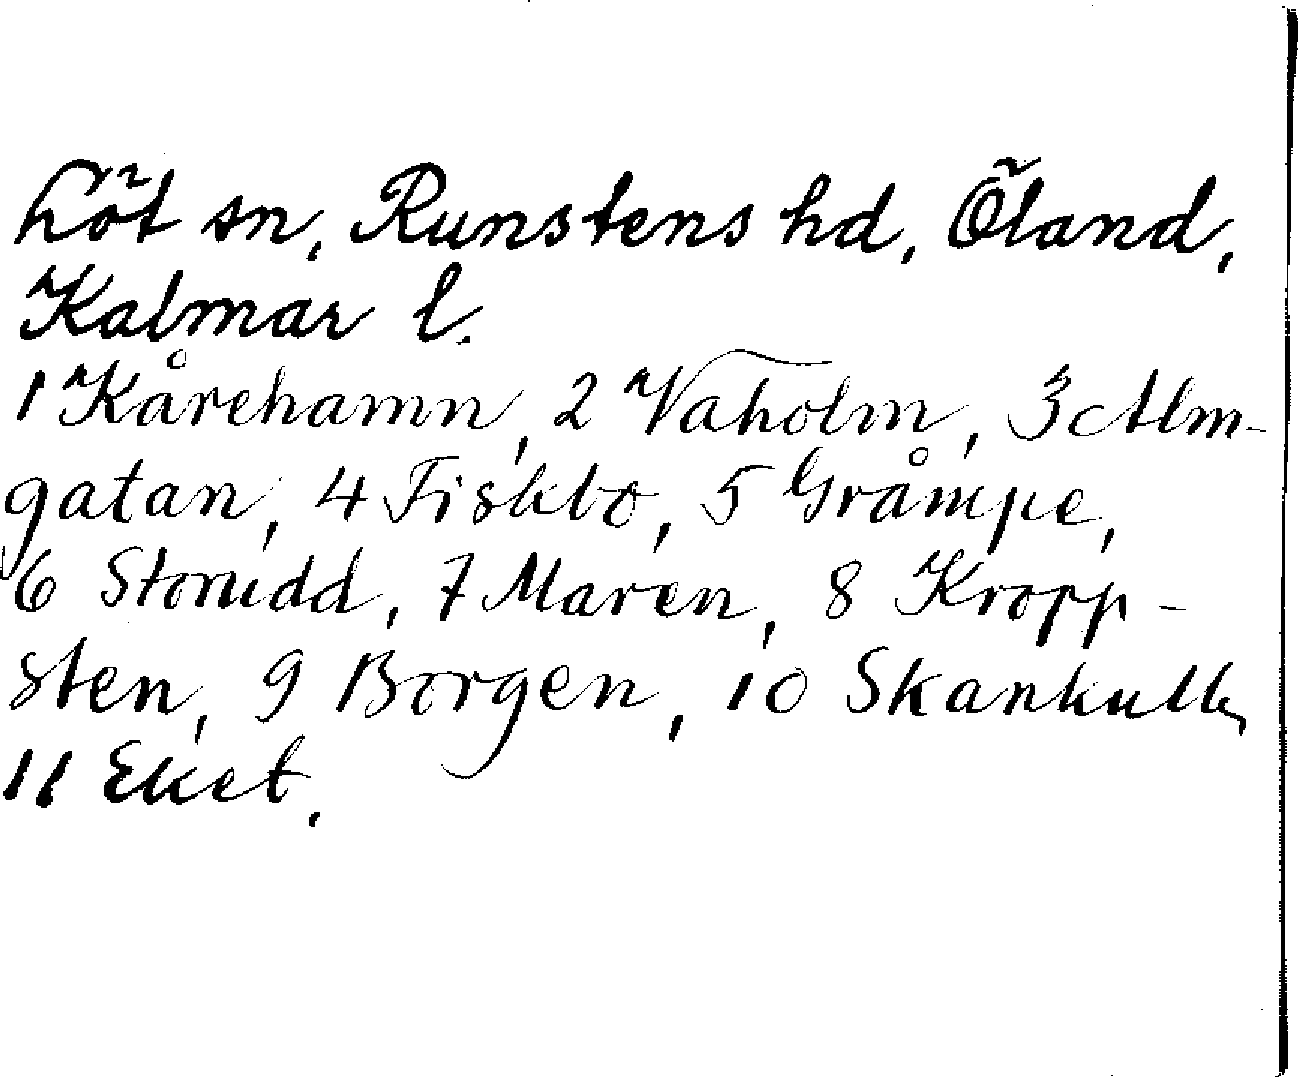 Löt sn, Runstens hd, Öland,
Kalmar l.
1 Kårehamn, 2 Vaholm, 3 Alm-
gatan, 4 Fiskbo, 5 Gråmpe,
6 Storudd, 7 Maren, 8 Kropp-
sten, 9 Borgen, 10 Skankulle,
11 Eket.